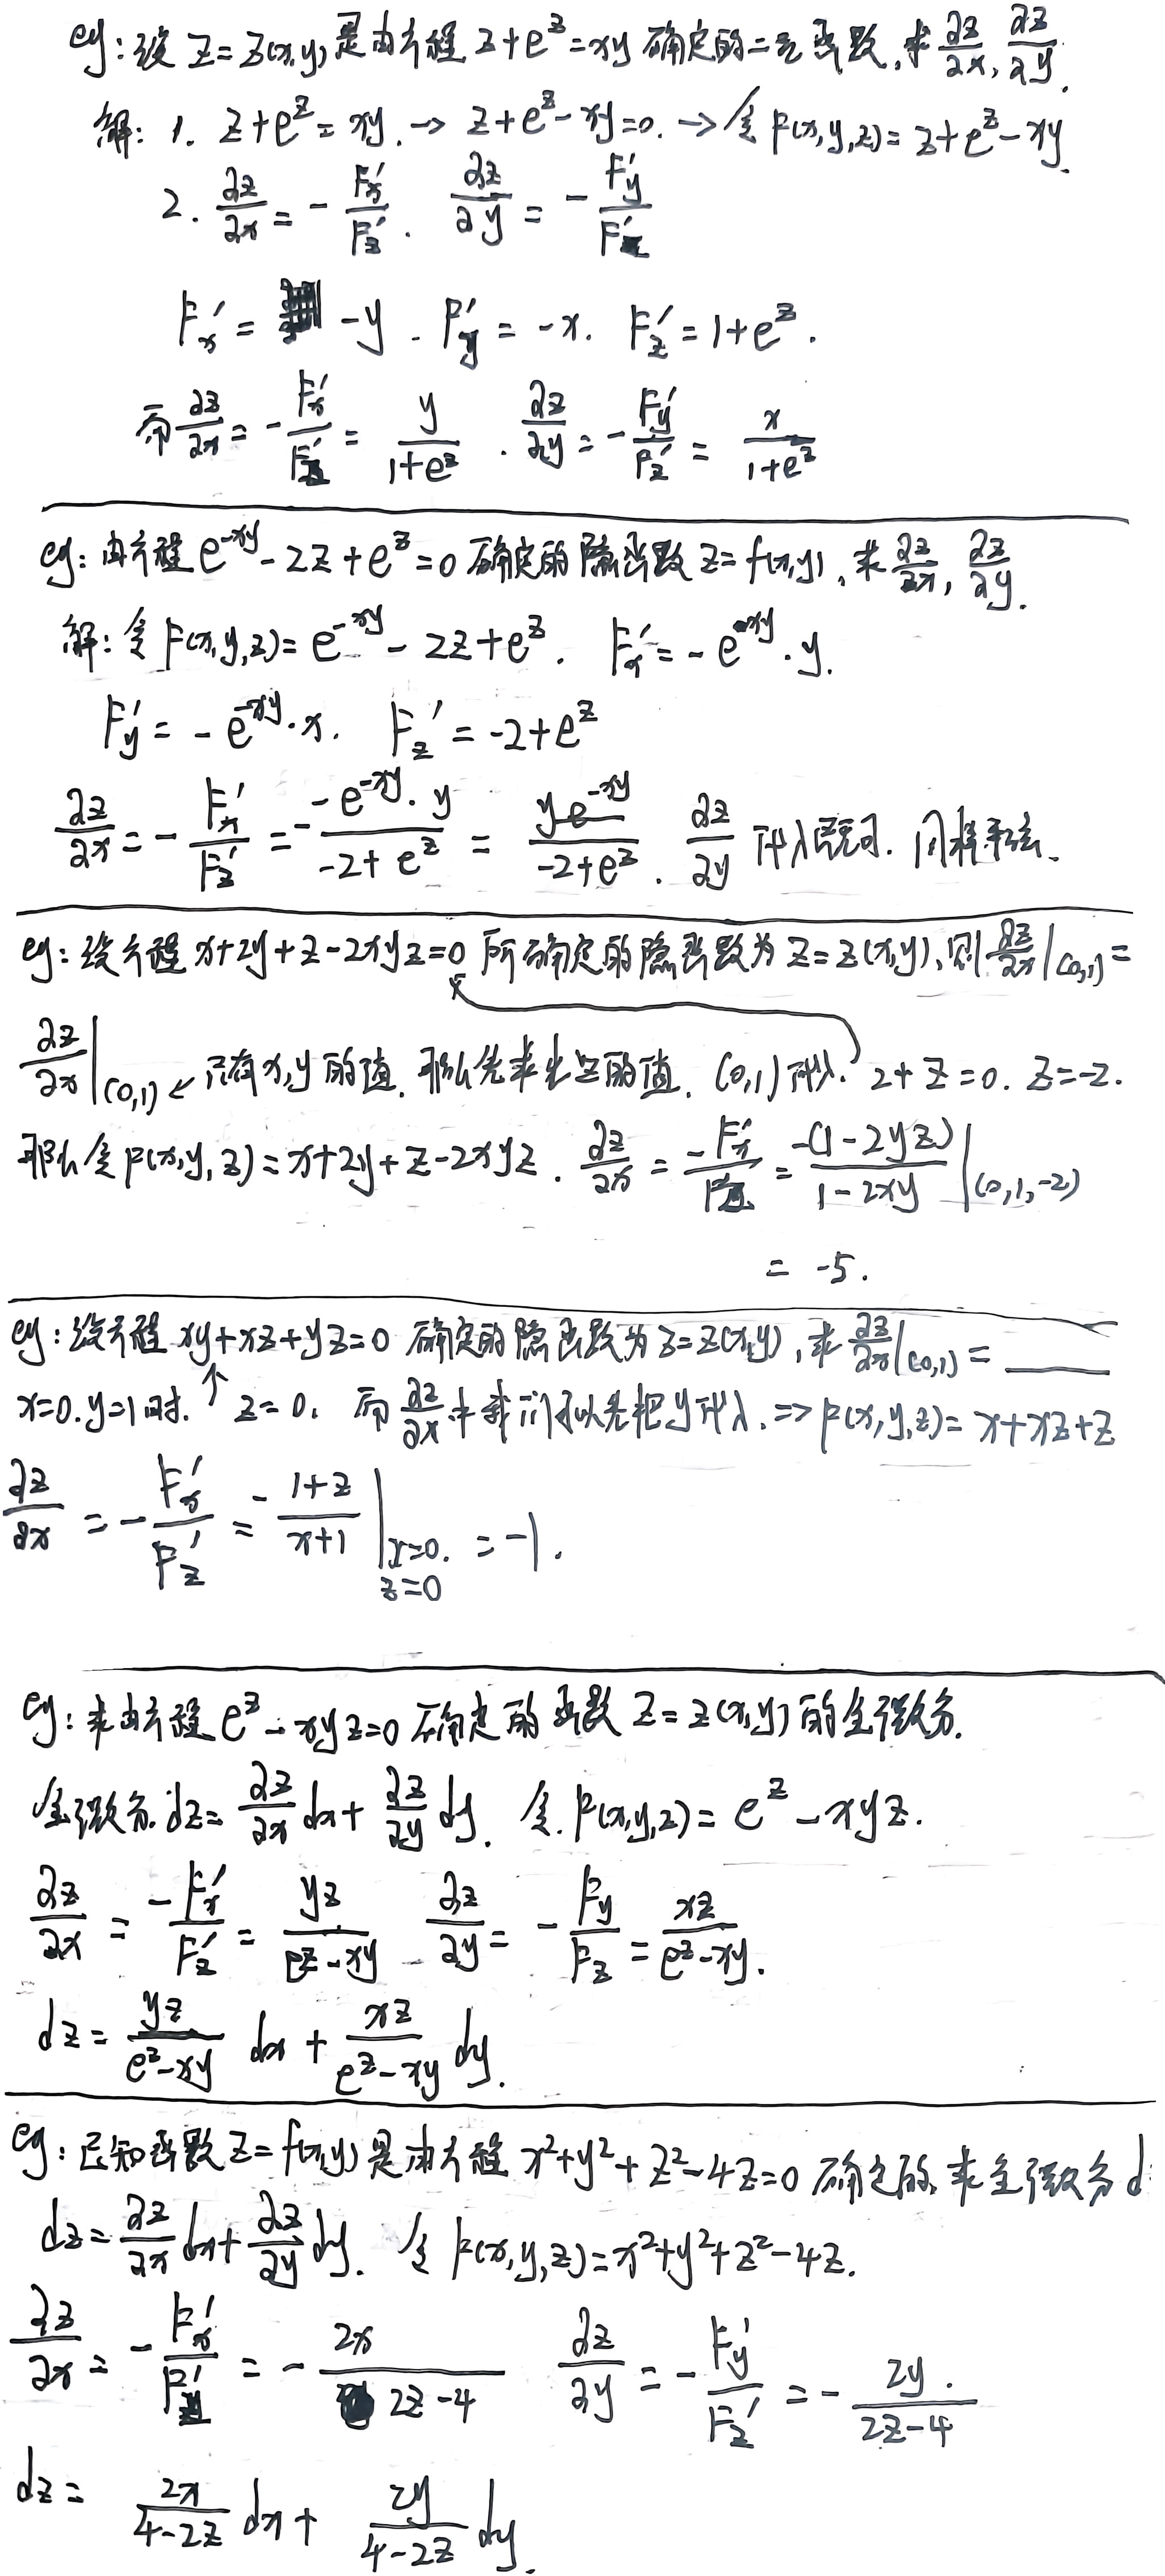 eg: 设 z=z(x,y) 是由方程 z+e^z=xy 确定的二元函数, 求 ∂z/∂x, ∂z/∂y.
解: 1. z+e^z=xy. → z+e^z-xy=0. → 令 F(x,y,z)=z+e^z-xy.
2. ∂z/∂x = -F'x/F'z. ∂z/∂y = -F'y/F'z
F'x = -y. F'y = -x. F'z = 1+e^z.
而 ∂z/∂x = -F'x/F'z = y/(1+e^z). ∂z/∂y = -F'y/F'z = x/(1+e^z)
eg: 由方程 e^(-xy)-2z+e^z=0 确定的隐函数 z=f(x,y), 求 ∂z/∂x, ∂z/∂y.
解: 令 F(x,y,z)=e^(-xy)-2z+e^z. F'x=-e^(-xy)·y.
F'y=-e^(-xy)·x. F'z=-2+e^z
∂z/∂x = -F'x/F'z = -(-e^(-xy)·y)/(-2+e^z) = ye^(-xy)/(-2+e^z). ∂z/∂y 代入既可. 同样求法.
eg: 设方程 x+2y+z-2xyz=0 所确定的隐函数为 z=z(x,y), 则 ∂z/∂x|(0,1)=
∂z/∂x|(0,1) ↙ 只有x,y的值. 那么先求出z的值. (0,1)代入. 2+z=0. z=-2.
那么令 F(x,y,z)=x+2y+z-2xyz. ∂z/∂x = -F'x/F'z = -(1-2yz)/(1-2xy)|(0,1,-2)
= -5.
eg: 设方程 xy+xz+yz=0 确定的隐函数为 z=z(x,y), 求 ∂z/∂x|(0,1) = ____
x=0.y=1时. ↑ z=0. 而 ∂z/∂x 中我们可以先把y代入. ⇒ F(x,y,z)=x+xz+z
∂z/∂x = -F'x/F'z = -(1+z)/(x+1)|x=0. z=0 = -1.
eg: 求由方程 e^z-xyz=0 确定的函数 z=z(x,y) 的全微分.
全微分. dz=∂z/∂x dx+∂z/∂y dy. 令. F(x,y,z)=e^z-xyz.
∂z/∂x = -F'x/F'z = yz/(e^z-xy) ∂z/∂y = -Fy/Fz = xz/(e^z-xy).
dz = yz/(e^z-xy) dx + xz/(e^z-xy) dy.
eg: 已知函数 z=f(x,y) 是由方程 x²+y²+z²-4z=0 确定的. 求全微分 d
dz=∂z/∂x dx+∂z/∂y dy. 令 F(x,y,z)=x²+y²+z²-4z.
∂z/∂x = -F'x/F'z = -2x/(2z-4) ∂z/∂y = -F'y/F'z = -2y/(2z-4).
dz = 2x/(4-2z) dx + 2y/(4-2z) dy.